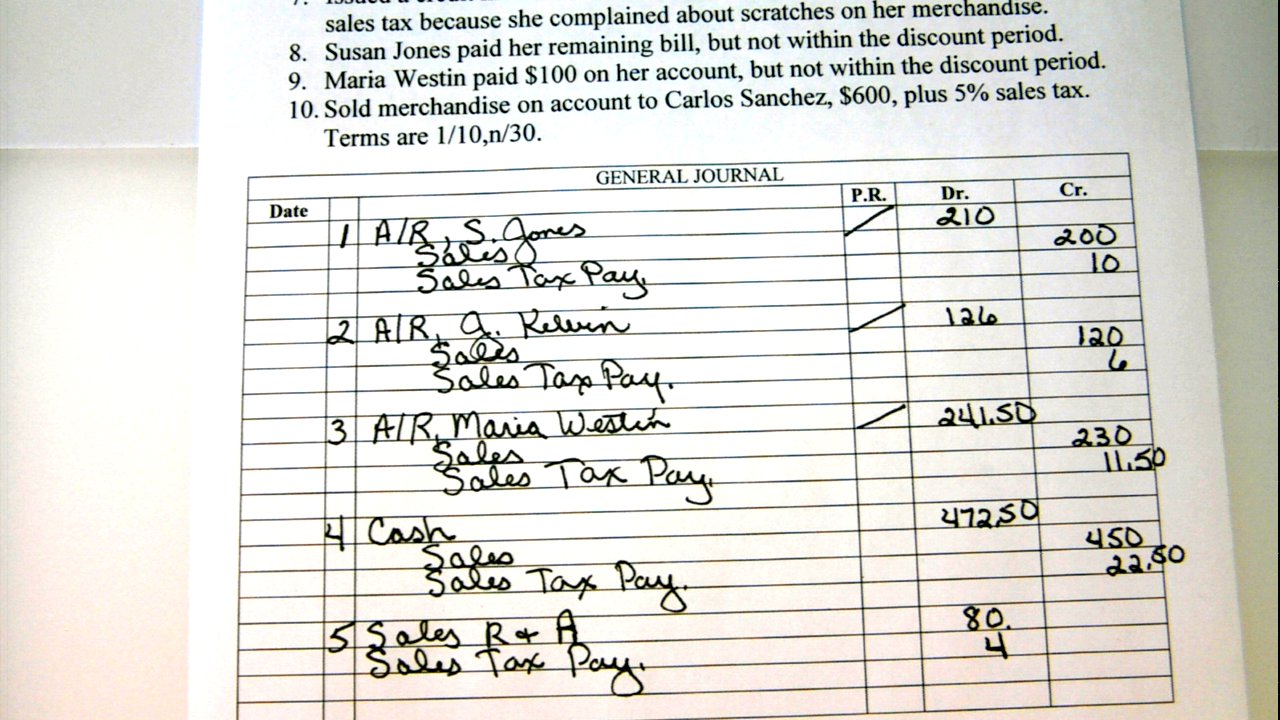 7. Issued a
sales tax because she complained about scratches on her merchandise.
8. Susan Jones paid her remaining bill, but not within the discount period.
9. Maria Westin paid $100 on her account, but not within the discount period.
10. Sold merchandise on account to Carlos Sanchez, $600, plus 5% sales tax.
Terms are 1/10,n/30.
GENERAL JOURNAL
Date P.R. Dr. Cr.
1 A/R, S. Jones 210
Sales 200
Sales Tax Pay. 10
2 A/R, G. Kelvin 126
Sales 120
Sales Tax Pay. 6
3 A/R, Maria Westin 241.50
Sales 230
Sales Tax Pay. 11.50
4 Cash 472.50
Sales 450
Sales Tax Pay. 22.50
5 Sales R + A 80.
Sales Tax Pay. 4